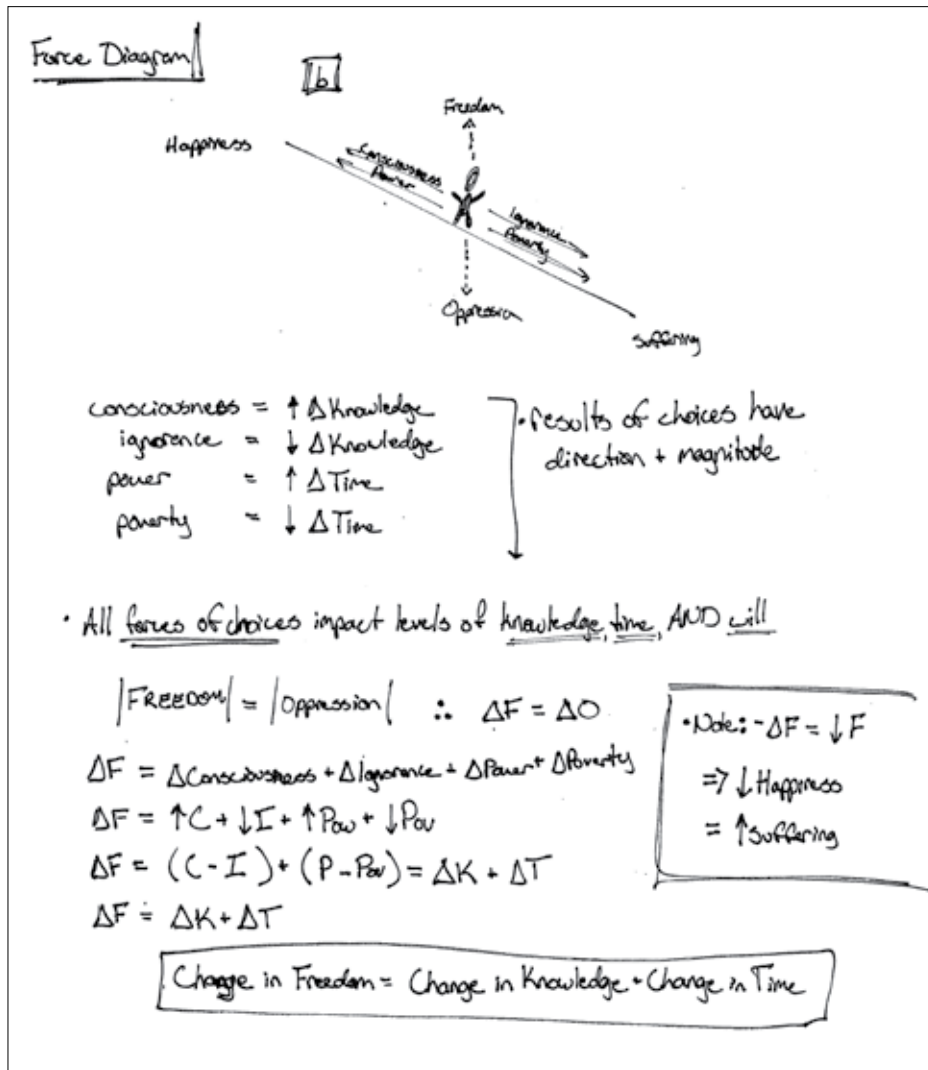 Force Diagram
b
Freedom
Happiness
Consciousness
Power
Ignorence
Poverty
Oppression
Suffering
consciousness = ↑ Δ Knowledge
ignorence = ↓ Δ Knowledge
power = ↑ Δ Time
poverty = ↓ Δ Time
• results of choices have
direction + magnitude
• All forces of choices impact levels of knowledge, time, AND will
|FREEDOM| = |Oppression| ∴ ΔF = ΔO
ΔF = ΔConsciousness + ΔIgnorence + ΔPower + ΔPoverty
ΔF = ↑C + ↓I + ↑Pow + ↓Pov
ΔF = (C - I) + (P - Pov) = ΔK + ΔT
ΔF = ΔK + ΔT
• Note: -ΔF = ↓F
=> ↓Happiness
= ↑Suffering
Change in Freedom = Change in Knowledge + Change in Time